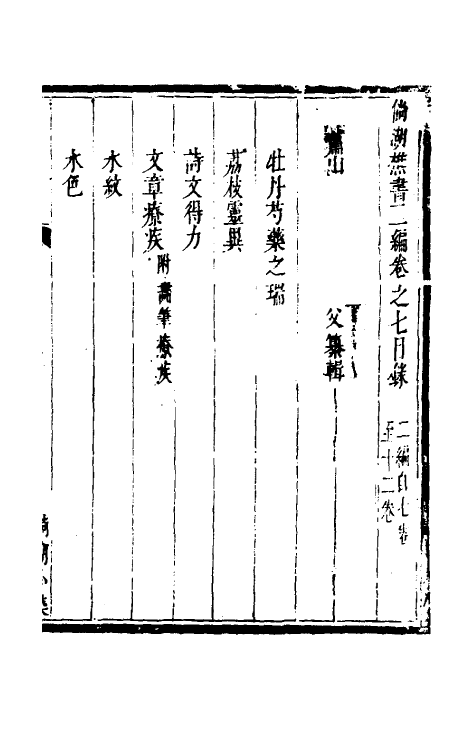 倘湖樵書二編卷之七目錄
二編自七卷
至十二卷
蕭山
父纂輯
牡丹芍藥之瑞
荔枝靈異
詩文得力
文章療疾 附畫筆療疾
水紋
水色
倘湖小築